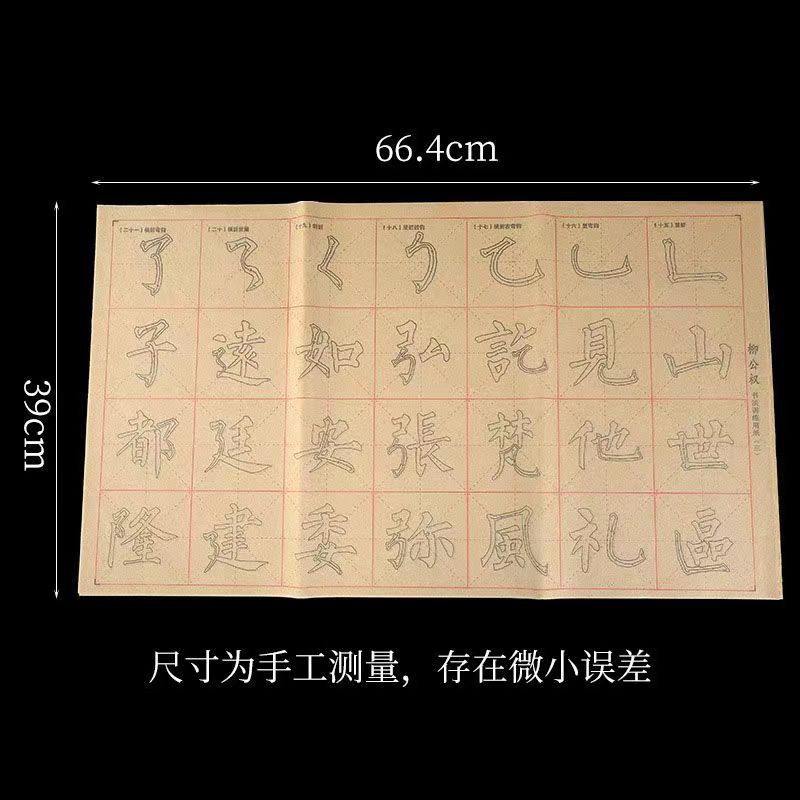 66.4cm
39cm
柳公权 书法训练用纸(三)
(十五)竖折
𠃊山世區
(十六)竖弯钩
乚見他礼
(十七)横折右弯钩
乙託梵風
(十八)竖折折钩
ㄅ弘張弥
(十九)
ㄑ如安委
(二十)横折
遠廷建
(二十一)横折弯钩
了子都隆
尺寸为手工测量，存在微小误差